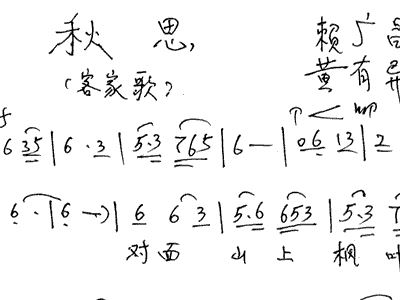 秋思
赖广
(客家歌)
黄有异
6 35 | 6 · 3 | 5·3 765 | 6 — | 06 13 | 2
6 · | 6 —) | 6 6 3 | 5·6 653 | 5·3 7
对面 山上 枫叶